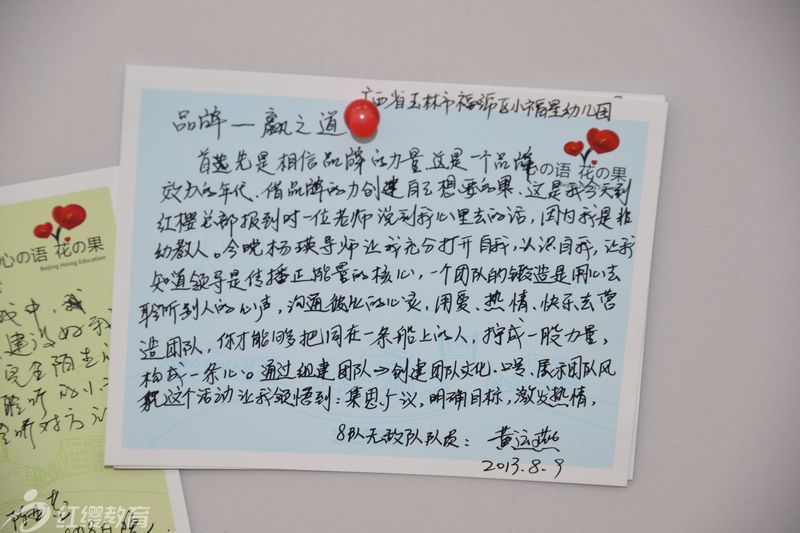 广西省玉林市福绵区小福星幼儿园
品牌—赢之道
心の语 花の果
首先是相信品牌的力量,这是一个品牌
效应的年代,借品牌的力创建自己想要的果,这是我今天到
红樱总部报到时一位老师说到我心里去的话,因为我是非
幼教人。今晚杨瑛导师让我充分打开自我,认识自我,让我
知道领导是传播正能量的核心,一个团队的锻造是用心去
聆听别人的心声,沟通彼此的心灵,用爱、热情、快乐去营
造团队,你才能够把同在一条船上的人,拧成一股力量,
构成一条心。通过组建团队→创建团队文化、口号、展示团队风
貌这个活动让我领悟到:集思广议,明确目标,激发热情。
8队无敌队队员:黄运燕
2013.8.9
心の语 花の果
Beijing Hoing Education
我中,我
建设好我
完全陌生
聆听的小
聆听对方
红缨教育